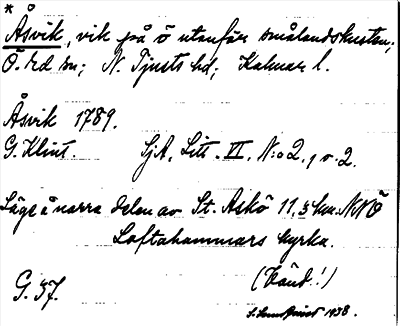 *
Åsvik, vik på ö utanför smålandskusten;
Ö. Ed sn; N. Tjusts hd; Kalmar l.
Åsvik 1789.
G. Klint. SjA, Litt. VI, N:o 2, r. 2.
Läge å norra delen av St. Askö 11,5 km. NNÖ
Loftahammars kyrka.
(Känd!)
G. 37.
1938.